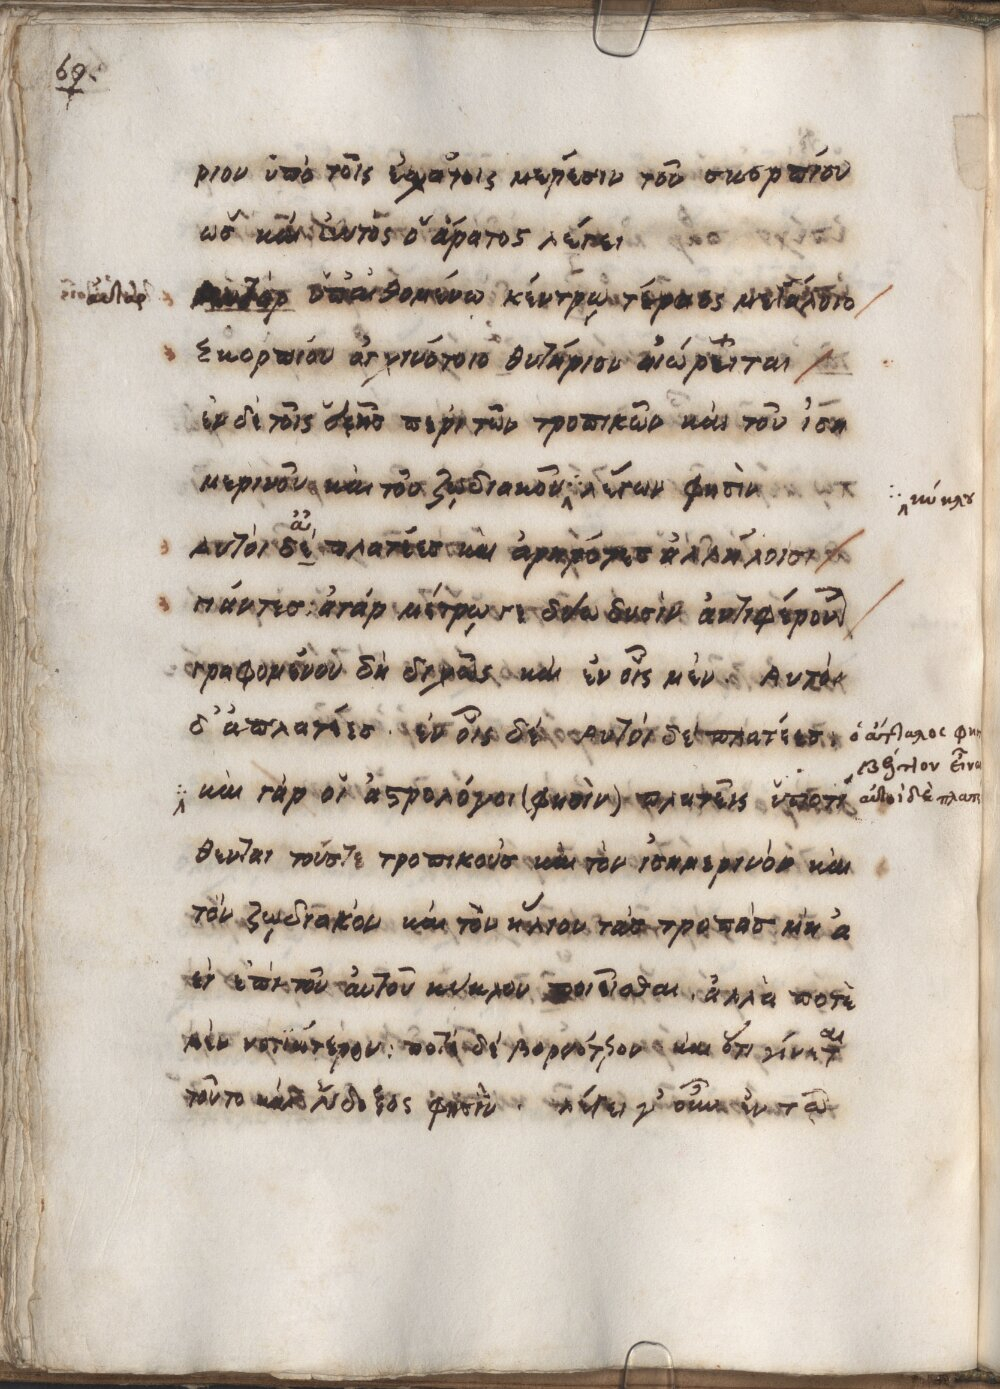 69
ριον ὑπὸ τοῖς ἐσχάτοις μέρεσιν τοῦ σκορπίου
ὡς καὶ αὐτὸς ὁ ἄρατος λέγει
αὐτὰρ ὑπ' αἰθομένω κέντρῳ τέραος μεγάλοιο
Σκορπίου ἄγχι νότοιο θυτήριον αἰώρεῖται
ἐν δὲ τοῖς ἑξῆς περὶ τῶν τροπικῶν καὶ τοῦ ἰση
μερινοῦ καὶ τοῦ ζῳδιακοῦ λέγων φησὶν
κύκλου
Αυτοὶ δὲ πλατέες καὶ ἀρηρότες ἀλλήλοισι
πάντες: ἀτὰρ μέτρῳ γε δύω δυσὶν ἀντιφέρον
γραφομένου δὴ διχῶς καὶ ἐν οἷς μὲν. Αυτοὶ
δ' ἀπλατέες. ἐν οἷς δὲ Αυτοὶ δὲ πλατέες.
ὁ ἄτταλος φη
βέλτιον εἶνα
αὐτοὶ δὲ πλατ
καὶ γὰρ οἱ ἀστρολόγοι (φησὶν) πλατεῖς ὑποτί
θενται τούς τε τροπικοὺς καὶ τὸν ἰσημερινὸν καὶ
τὸν ζῳδιακὸν καὶ τὸν ἥλιον τὰς τροπὰς μὴ ἀ
εὶ ἐπὶ τοῦ αὐτοῦ κύκλου ποιεῖσθαι. ἀλλὰ ποτὲ
μὲν νοτιώτερον: ποτὲ δὲ βορειότερον καὶ ὅτι γίνεται
τοῦτο καὶ Εὔδοξος φησὶν. λέγει γ' οὖν ἐν τῶ